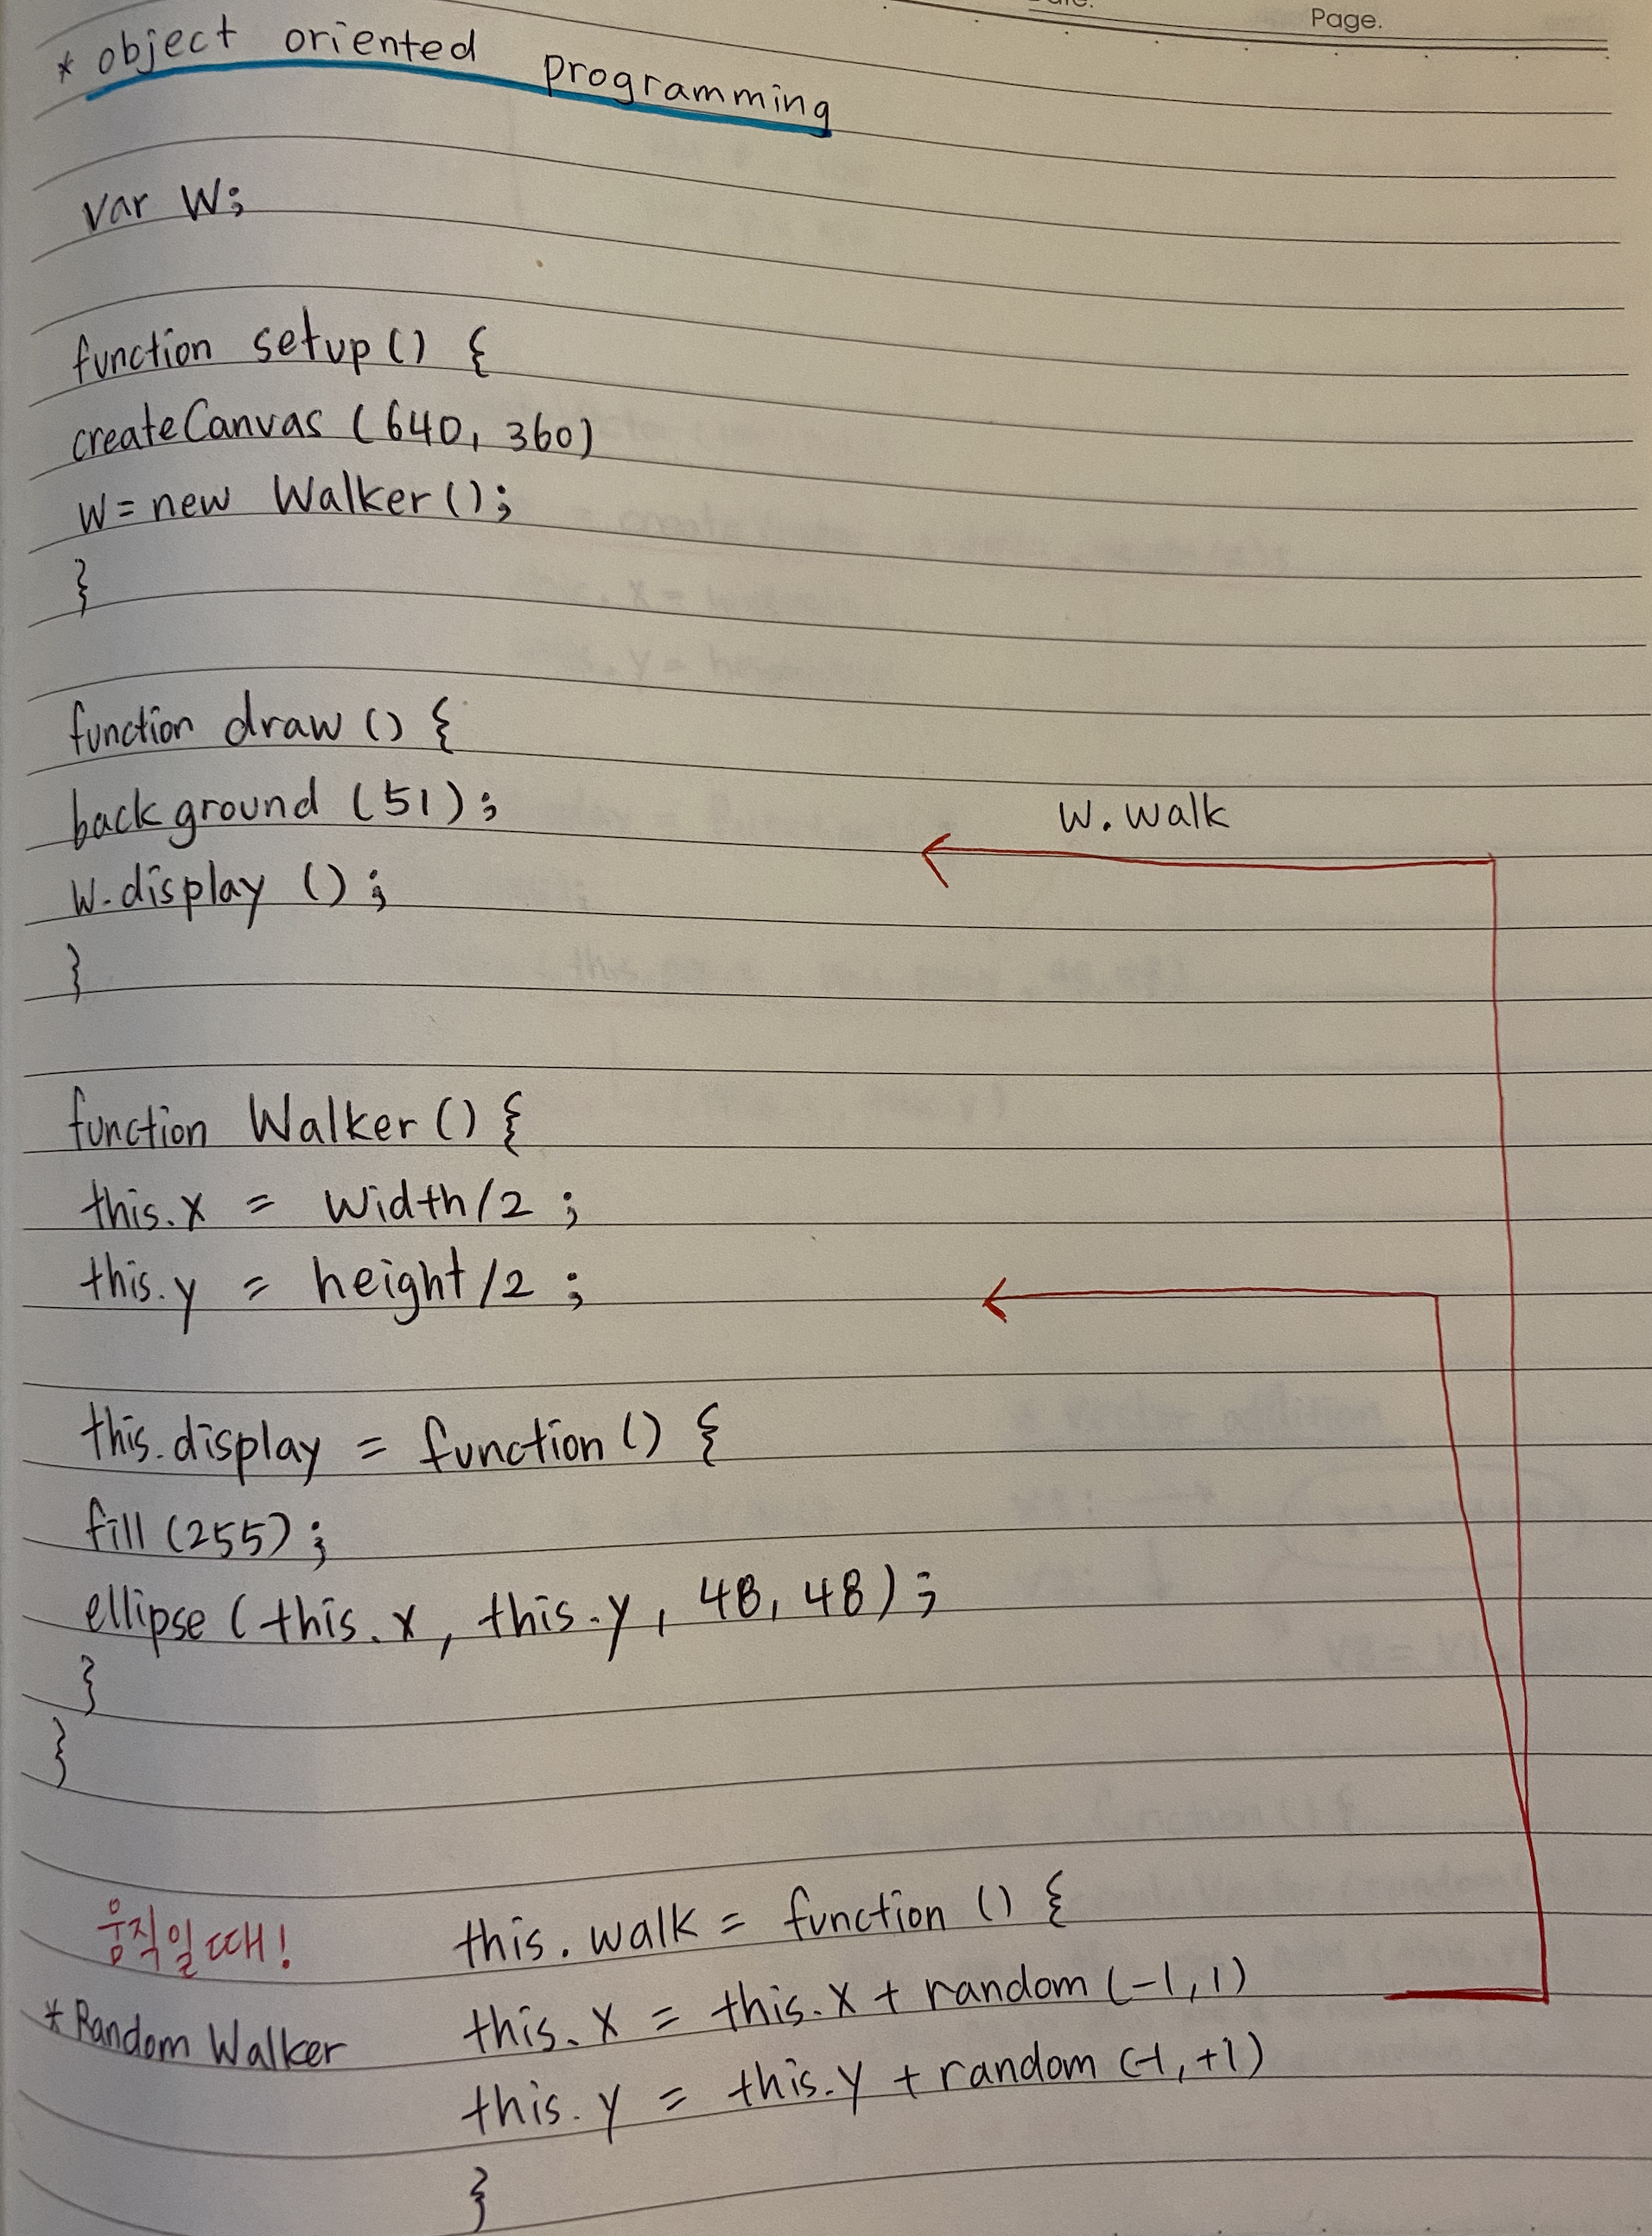 Page.
* object oriented programming
var W;
function setup() {
createCanvas (640, 360)
W = new Walker();
}
function draw () {
background (51);
W. walk
W.display ();
}
function Walker() {
this.x = width/2 ;
this.y = height/2 ;
this.display = function() {
fill (255);
ellipse (this.x, this.y, 48, 48);
}
}
움직일 때!
this. walk = function () {
* Random Walker
this. x = this. x + random (-1, 1)
this. y = this. y + random (-1, +1)
}